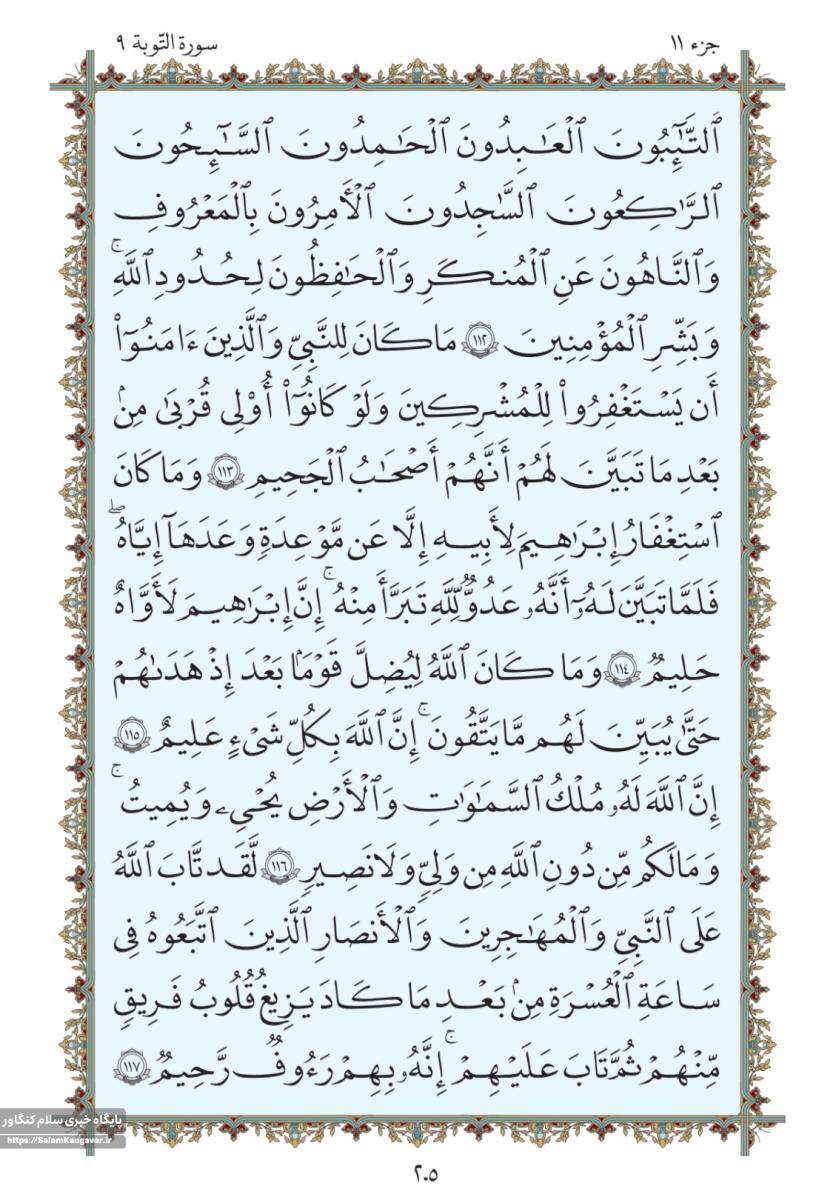 جزء ۱۱
سورة التّوبة ۹
ٱلتَّـٰٓئِبُونَ ٱلْعَـٰبِدُونَ ٱلْحَـٰمِدُونَ ٱلسَّـٰٓئِحُونَ
ٱلرَّٰكِعُونَ ٱلسَّـٰجِدُونَ ٱلْأَمِرُونَ بِٱلْمَعْرُوفِ
وَٱلنَّاهُونَ عَنِ ٱلْمُنكَرِ وَٱلْحَـٰفِظُونَ لِحُدُودِ ٱللَّهِ ۚ
وَبَشِّرِ ٱلْمُؤْمِنِينَ ۝١١٢ مَا كَانَ لِلنَّبِيِّ وَٱلَّذِينَ ءَامَنُوٓا۟
أَن يَسْتَغْفِرُوا۟ لِلْمُشْرِكِينَ وَلَوْ كَانُوٓا۟ أُو۟لِى قُرْبَىٰ مِنۢ
بَعْدِ مَا تَبَيَّنَ لَهُمْ أَنَّهُمْ أَصْحَـٰبُ ٱلْجَحِيمِ ۝١١٣ وَمَا كَانَ
ٱسْتِغْفَارُ إِبْرَٰهِيمَ لِأَبِيهِ إِلَّا عَن مَّوْعِدَةٍ وَعَدَهَآ إِيَّاهُ ۖ
فَلَمَّا تَبَيَّنَ لَهُۥٓ أَنَّهُۥ عَدُوٌّ لِّلَّهِ تَبَرَّأَ مِنْهُ ۚ إِنَّ إِبْرَٰهِيمَ لَأَوَّاهٌ
حَلِيمٌ ۝١١٤ وَمَا كَانَ ٱللَّهُ لِيُضِلَّ قَوْمًۢا بَعْدَ إِذْ هَدَىٰهُمْ
حَتَّىٰ يُبَيِّنَ لَهُم مَّا يَتَّقُونَ ۚ إِنَّ ٱللَّهَ بِكُلِّ شَىْءٍ عَلِيمٌ ۝١١٥
إِنَّ ٱللَّهَ لَهُۥ مُلْكُ ٱلسَّمَـٰوَٰتِ وَٱلْأَرْضِ يُحْىِۦ وَيُمِيتُ ۚ
وَمَا لَكُم مِّن دُونِ ٱللَّهِ مِن وَلِىٍّ وَلَا نَصِيرٍ ۝١١٦ لَّقَد تَّابَ ٱللَّهُ
عَلَى ٱلنَّبِيِّ وَٱلْمُهَـٰجِرِينَ وَٱلْأَنصَارِ ٱلَّذِينَ ٱتَّبَعُوهُ فِى
سَاعَةِ ٱلْعُسْرَةِ مِنۢ بَعْدِ مَا كَادَ يَزِيغُ قُلُوبُ فَرِيقٍ
مِّنْهُمْ ثُمَّ تَابَ عَلَيْهِمْ ۚ إِنَّهُۥ بِهِمْ رَءُوفٌ رَّحِيمٌ ۝١١٧
پایگاه خبری سلام کنگاور
https://SalamKangavar.ir
۲۰۵